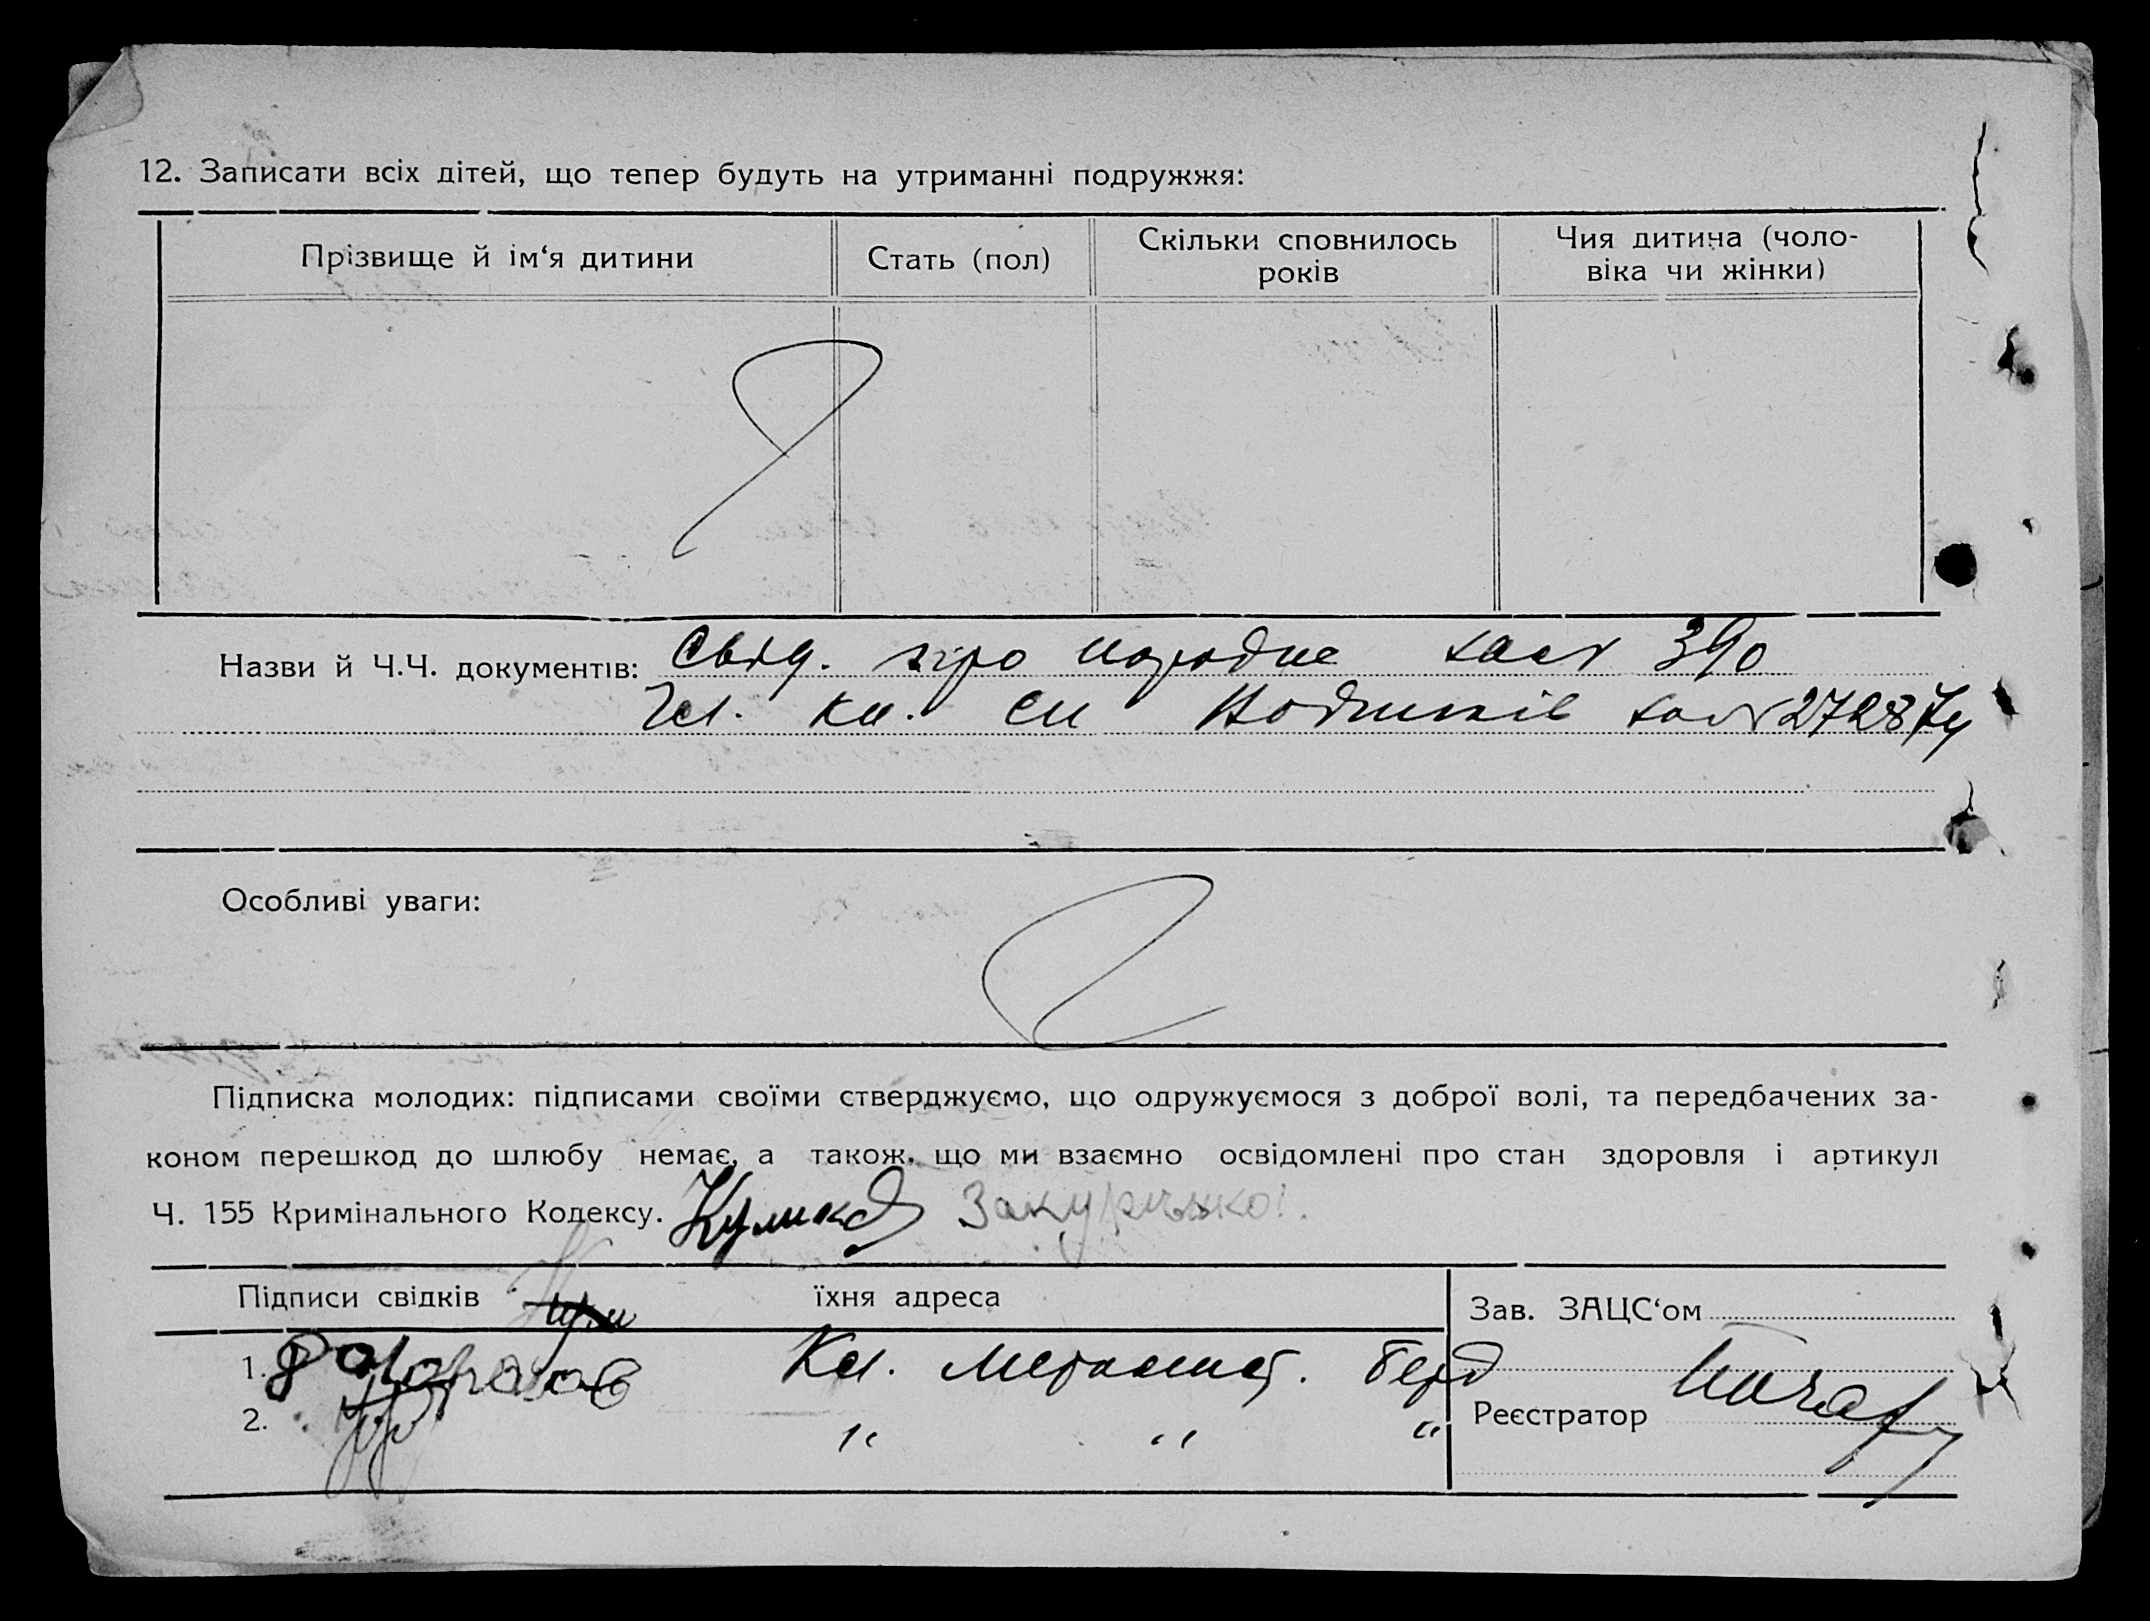 12. Записати всіх дітей, що тепер будуть на утриманні подружжя:
Прізвище й ім‘я дитини
Стать (пол)
Скільки сповнилось
років
Чия дитина (чоло-
віка чи жінки)
Назви й Ч.Ч. документів: Свід. про народже 390
Чл. кн. 272874
Особливі уваги:
Підписка молодих: підписами своїми стверджуємо, що одружуємося з доброї волі, та передбачених за-
коном перешкод до шлюбу немає, а також, що ми взаємно освідомлені про стан здоровля і артикул
Ч. 155 Кримінального Кодексу.
Підписи свідків їхня адреса
Зав. ЗАЦС‘ом
1. Кл. Берд
2. " " "
Реєстратор